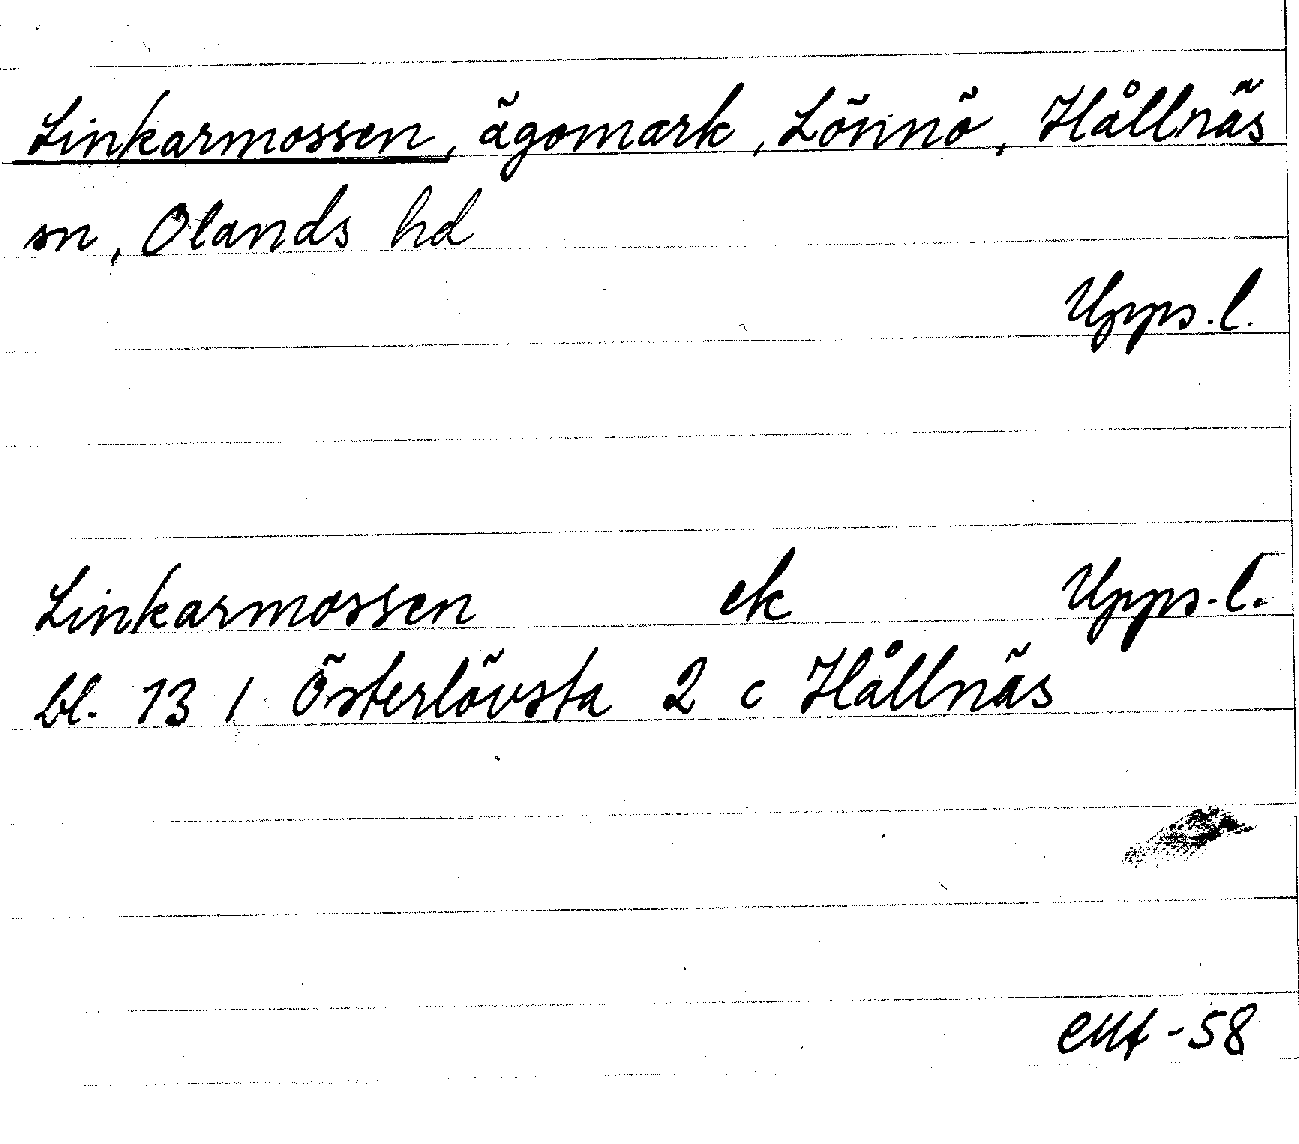 Linkarmossen, ägomark, Lönnö, Hållnäs
sn, Olands hd
Upps.l.
Linkarmossen ek Upps.l.
bl. 13 1 Österlövsta 2 c Hållnäs
-58